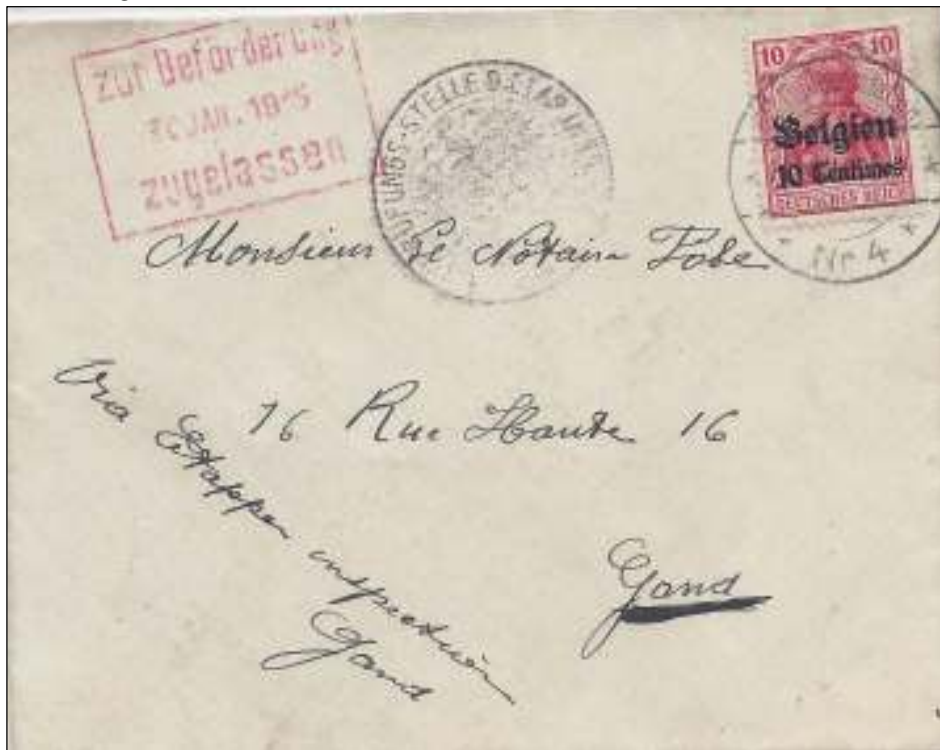 Zur Beförderung
JAN. 1915
zugelassen
PRÜFUNGS-STELLE D. ETAP. INSP.
10 10
Belgien
10 Centimes
DEUTSCHES REICH
Nr 4
Monsieur Le Notaire Fobe
16 Rue Haute 16
Gand
Via Etappen inspection
Gand